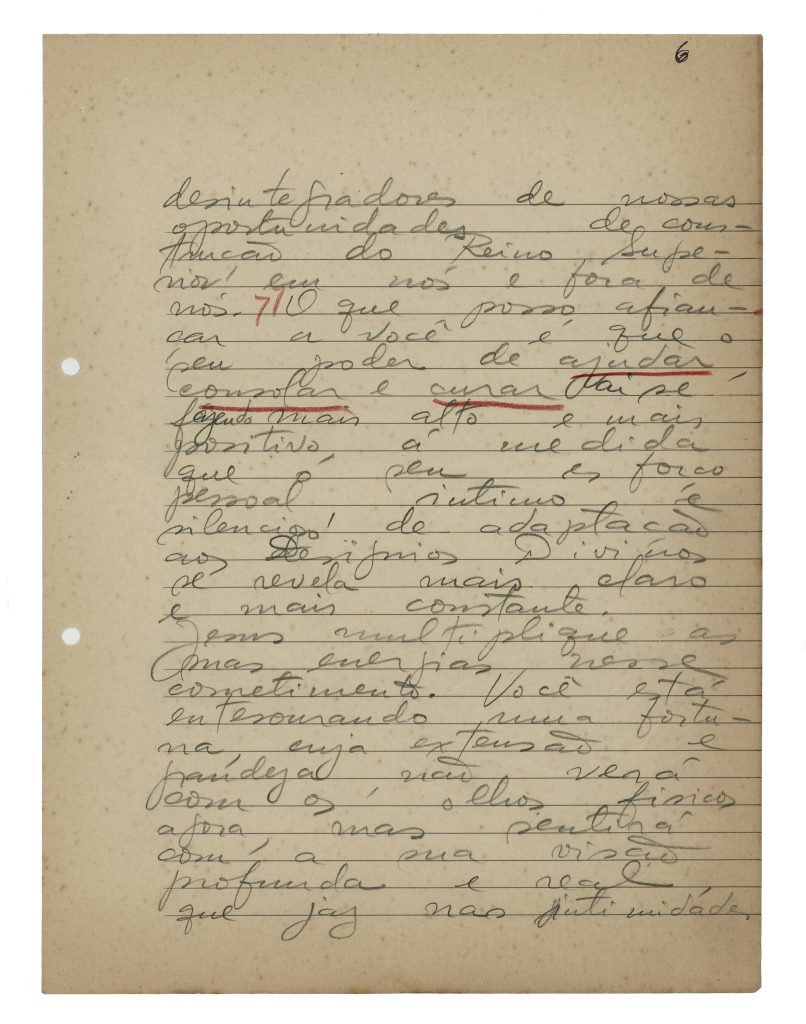 6
desintegradores de nossas
oportunidades de cons-
trucão do Reino Supe-
rior em nós e fora de
nós. 7/ O que posso afian-
car a você é que o
seu poder de ajudar,
consolar e curar vai se
fazendo mais alto e mais
positivo, á medida
que o seu esforco
pessoal intimo e
silencioso de adaptacão
aos Desígnios Divinos
se revela mais claro
e mais constante.
Jesus multiplique as
suas energias nesse
cometimento. Você está
entesourando uma fortu-
na, cuja extensão e
grandeza não verá
com os olhos fisicos
agora, mas sentirá
com a sua visão
profunda e real,
que jaz nas intimidades